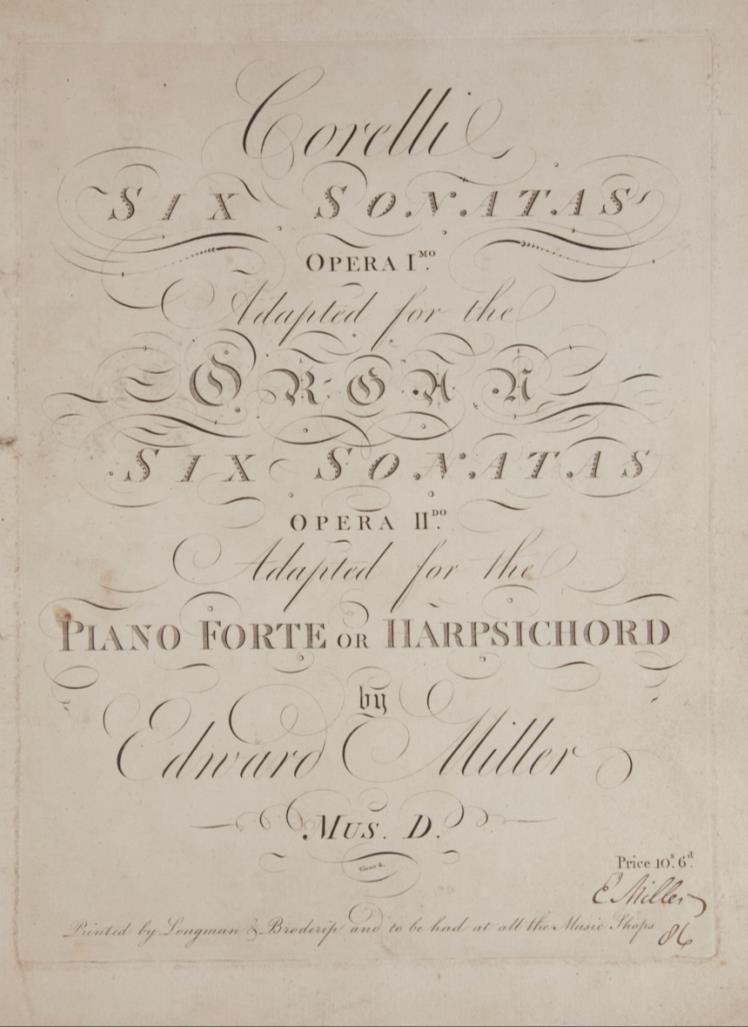 Corelli
SIX SONATAS
OPERA I.MO
Adapted for the
ORGAN
SIX SONATAS
OPERA II.DO
Adapted for the
PIANO FORTE OR HARPSICHORD
by
Edward Miller
MUS. D.
Price 10.s 6.d
E Miller
Printed by Longman & Broderip and to be had at all the Music Shops
86